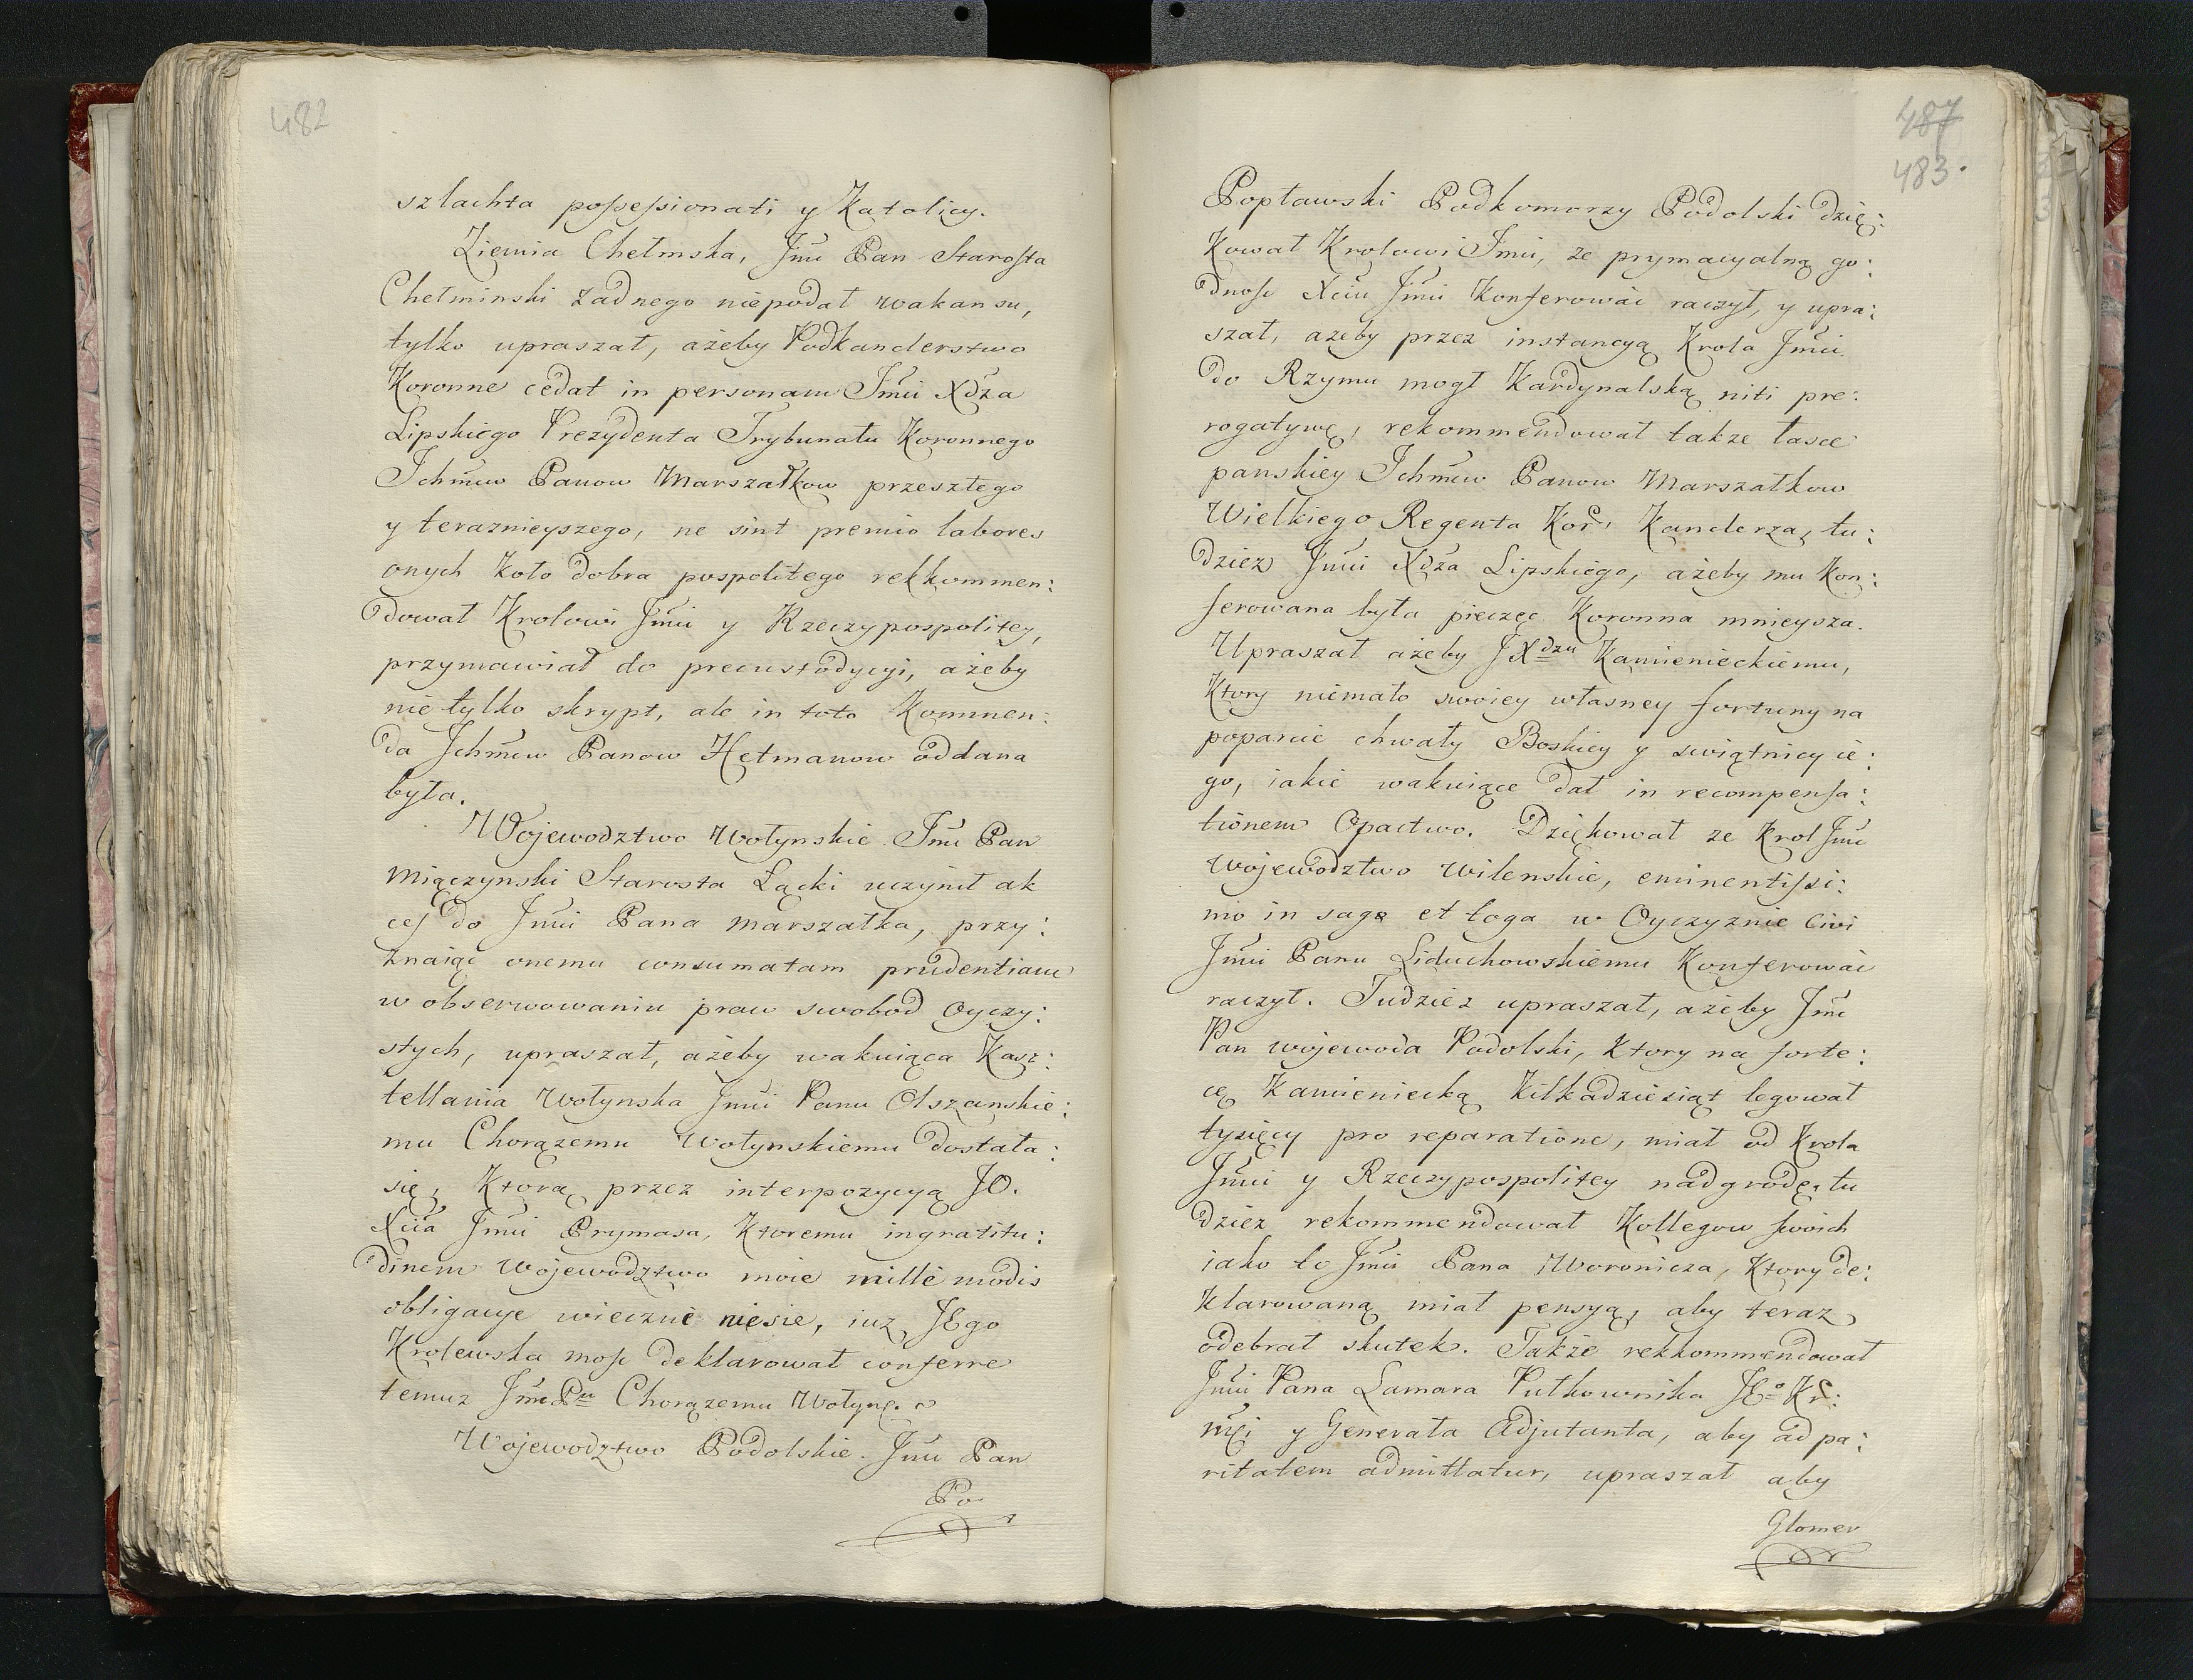 482
szlachta possessionati y Katolicy.
Ziemia Chełmska, Jmć Pan Starosta
Chełminski żadnego niepodał wakansu,
tylko upraszał, ażeby Podkanclerstwo
Koronne cedat in personam Jmći Xdza
Lipskiego Prezydenta Trybunału Koronnego
Ichmćiow Panow Marszałkow przeszłego
y teraznieyszego, ne sint premio labores
onych koło dobra pospolitego rekkommen:
dował Krolowi Jmći y Rzeczypospolitey,
przymawiał do precustodycyi, ażeby
nie tylko skrypt, ale in toto Kommen:
da Ichmćiow Panow Hetmanow oddana
była.
Wojewodztwo Wołynskie. Jmć Pan
Miączynski Starosta Łącki uczynił ak
ces do Jmći Pana Marszałka, przy:
znaiąc onemu consumatam prudentiam
w obserwowaniu praw swobod oyczy:
stych, upraszał, ażeby wakuiąca Kasz:
tellania Wołynska Jmći Panu Olszanskie:
mu Chorązemu Wołynskiemu dostała:
się, Ktorą przez interpozycyą JO.
Xcia Jmći Prymasa, Ktoremu ingratitu:
dinem Wojewodztwo moie mille modis
obligacye wieczne niesie, iuz JEgo
Krolewska mość deklarował conferre
temuz Jmć Pu Chorązemu Wołyn.
Wojewodztwo Podolskie. Jmć Pan
Po
487
483.
Popławski Podkomorzy Podolski dzię:
kował Krolowi Jmći, ze prymacyalną go:
dnośc Xciu Jmći Konferowac raczył, y upra:
szał, ażeby przez instancyą Krola Jmći
do Rzymu mogł Kardynalską niti pre:
rogatywę, rekommendował takze łasce
panskiey Ichmćiow Panow Marszałkow
Wielkiego Regenta Kor, Kanclerza, tu:
dziez Jmći Xdza Lipskiego, ażeby mu kon:
ferowana była pieczęc Koronna mnieysza.
Upraszał ażeby JXdzu Kamienieckiemu,
Ktory niemało swoiey własney fortuny na
poparcie chwały Boskiey y swiątnicy ie:
go, iakie wakuiące dał in recompensa:
tionem Opactwo. Dziękował ze Krol Jmć
Wojewodztwo Wilenskie, eminentissi:
mo in saga et toga w Oyczyznie Civi
Jmći Panu Liduchowskiemu Konferowac
raczył. Tudziez upraszał, ażeby Jmć
Pan wojewoda Podolski, Ktory na forte:
cę Kamieniecką Kilkadziesiąt legował
tysięcy pro reparatione, miał od Krola
Jmći y Rzeczypospolitey nadgrodę, tu
dziez rekommendował Kollegow swoich
iako to Jmći Pana Woronicza, Ktory de:
klarowaną miał pensyą, aby teraz
odebrał skutek. Także rekkommendował
Jmći Pana Lamara Pułkownika JEo Kr:
mći y Generała Adjutanta, aby ad pa:
ritatem admittatur, upraszał aby
Glomer